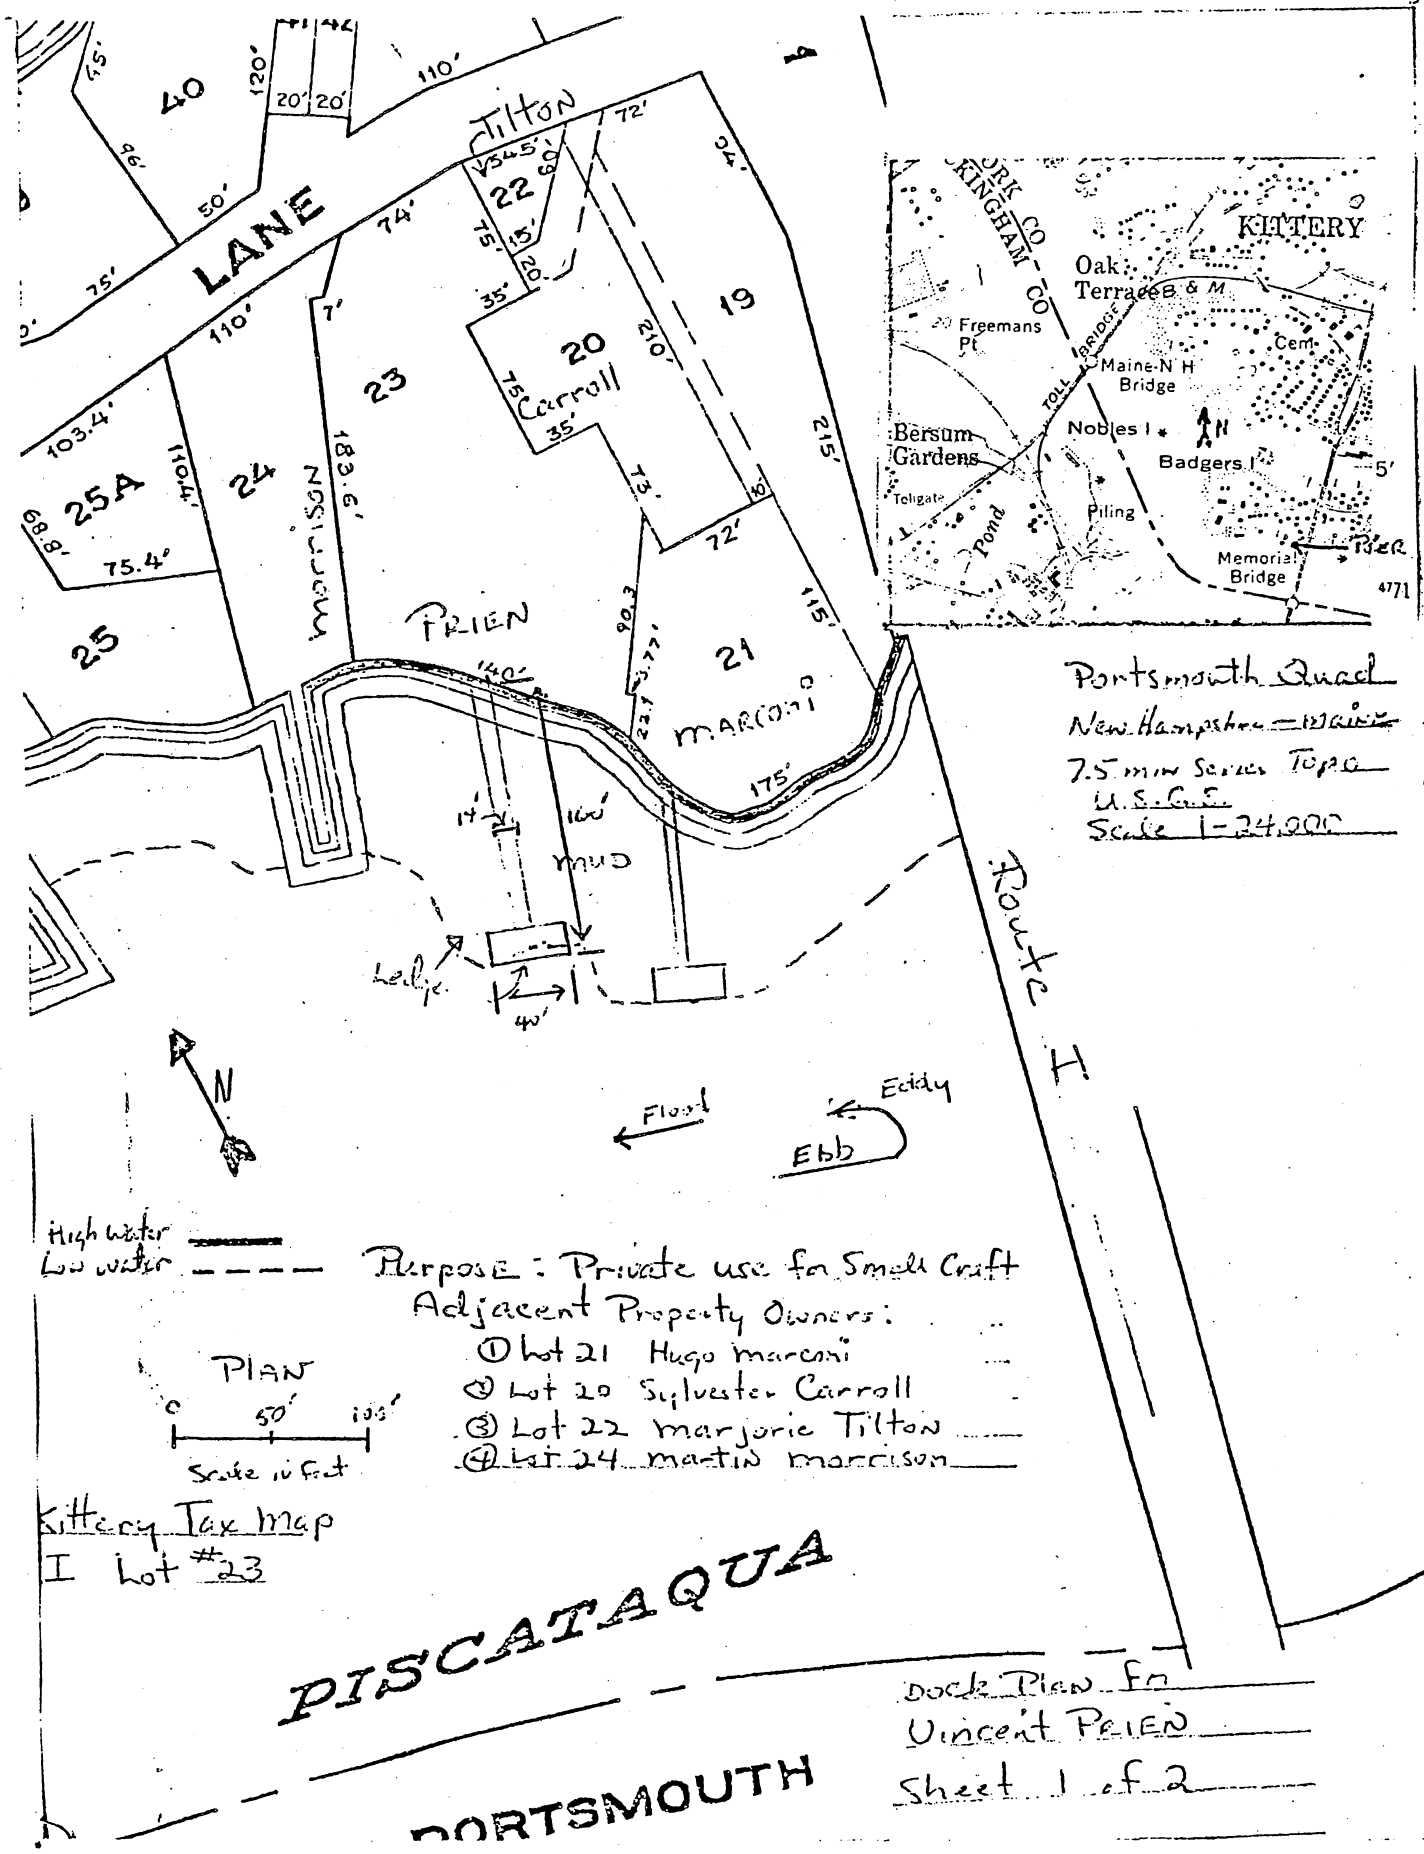 41 42
45'
40
120'
20' 20'
110'
96'
50'
LANE
75'
Tilton
54.5'
60'
72'
94'
22
75'
15'
20'
74'
110'
7'
35'
19
210'
20
Carroll
75'
35'
73'
10'
72'
215'
23
183.6'
103.4'
110.4'
24
MORRISON
25A
68.8'
75.4'
25
PRIEN
90.3
22.1
115'
21
MARCONI
175'
40'
14'
100'
MUD
Ledge
40'
N
Flood
Eddy
Ebb
Route I
ORK CO
KINGHAM CO
KITTERY
Oak
Terrace
B & M
Freemans
Pt
TOLL BRIDGE
Cem
Maine-N H
Bridge
Nobles I
N
Badgers I
Bersum
Gardens
Tollgate
Pond
Piling
5'
PIER
Memorial
Bridge
4771
Portsmouth Quad
New Hampshire - Maine
7.5 min Series Topo
U.S.G.S.
Scale 1-24,000
High water
Low water
Purpose: Private use for Small Craft
Adjacent Property Owners:
① Lot 21 Hugo Marconi
② Lot 20 Sylvester Carroll
③ Lot 22 Marjorie Tilton
④ Lot 24 Martin Morrison
PLAN
0 50' 100'
Scale in feet
Kittery Tax Map
I Lot #23
PISCATAQUA
PORTSMOUTH
Dock Plan for
Vincent PRIEN
Sheet 1 of 2